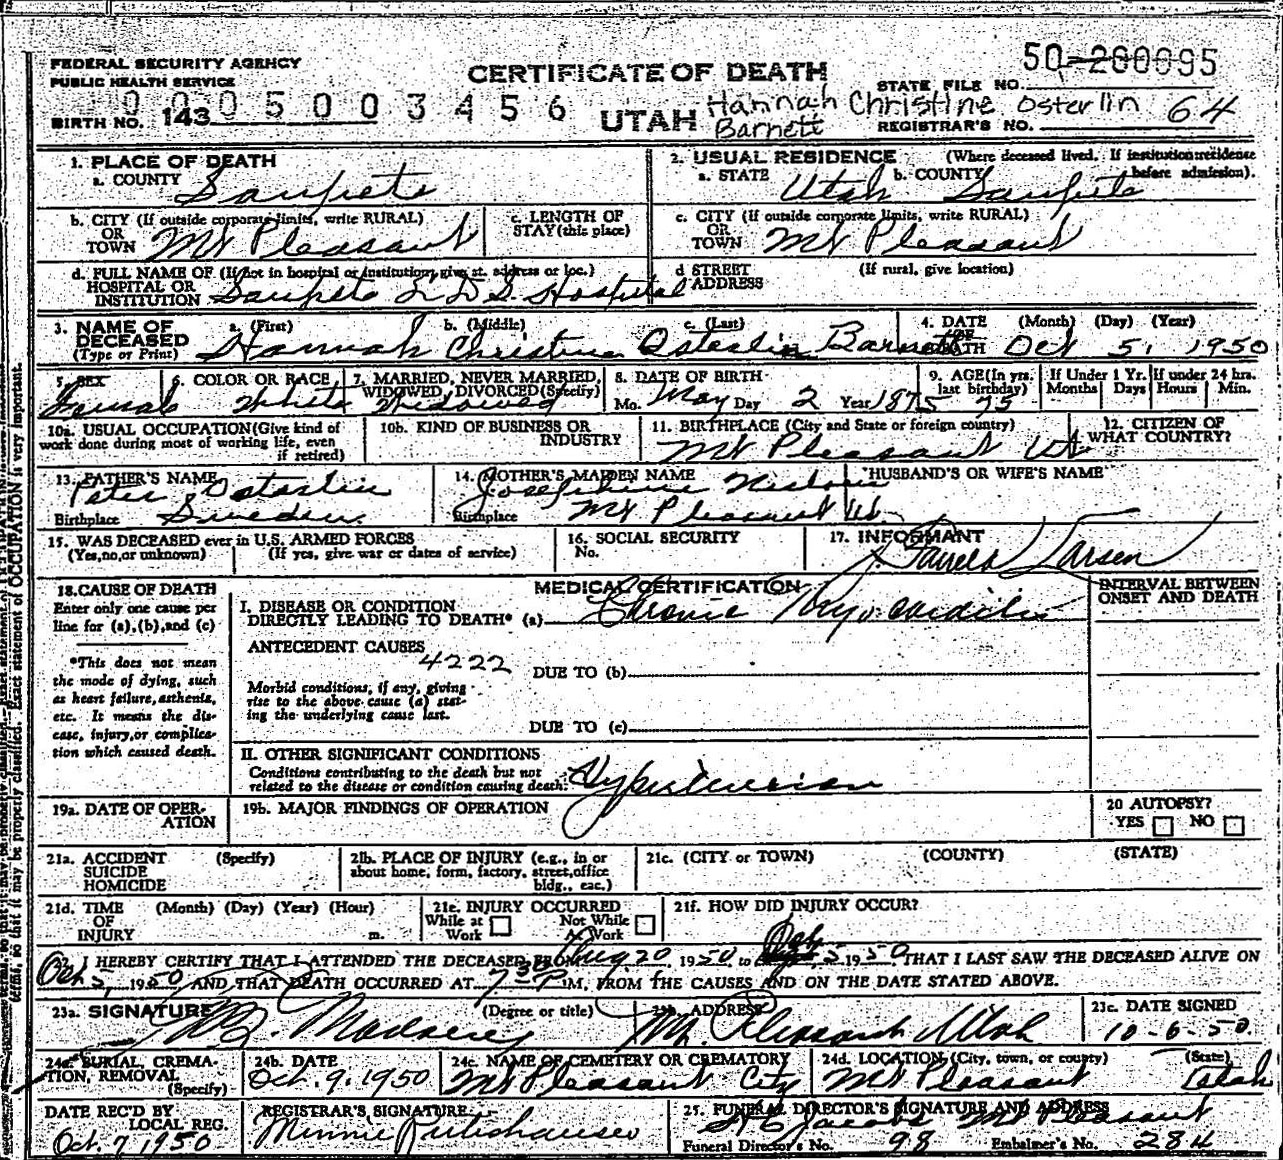 FEDERAL SECURITY AGENCY
PUBLIC HEALTH SERVICE
CERTIFICATE OF DEATH
STATE FILE NO. 50-200095
0005003456
BIRTH NO. 143
UTAH
Hannah Christine Osterlin
Barnett
REGISTRAR'S NO. 64
1. PLACE OF DEATH
a. COUNTY Sanpete
2. USUAL RESIDENCE (Where deceased lived. If institution: residence before admission).
a. STATE Utah b. COUNTY Sanpete
b. CITY (If outside corporate limits, write RURAL)
OR
TOWN Mt Pleasant
c. LENGTH OF
STAY (this place)
c. CITY (If outside corporate limits, write RURAL)
OR
TOWN Mt Pleasant
d. FULL NAME OF (If not in hospital or institution, give st. address or loc.)
HOSPITAL OR
INSTITUTION Sanpete L D S Hospital
d STREET
ADDRESS
(If rural, give location)
3. NAME OF
DECEASED
(Type or Print)
a. (First) b. (Middle) c. (Last)
Hannah Christina Osterlin Barnett
4. DATE (Month) (Day) (Year)
OF
DEATH Oct 5, 1950
5. SEX
Female
6. COLOR OR RACE
White
7. MARRIED, NEVER MARRIED,
WIDOWED, DIVORCED (Specify)
Widowed
8. DATE OF BIRTH
Mo. May Day 2 Year 1875
9. AGE (In yrs.
last birthday)
75
If Under 1 Yr.
Months Days
If under 24 hrs.
Hours Min.
10a. USUAL OCCUPATION (Give kind of
work done during most of working life, even
if retired)
10b. KIND OF BUSINESS OR
INDUSTRY
11. BIRTHPLACE (City and State or foreign country)
Mt Pleasant Ut
12. CITIZEN OF
WHAT COUNTRY?
13. FATHER'S NAME
Peter Osterlin
Birthplace Sweden
14. MOTHER'S MAIDEN NAME
Josephine
Birthplace Mt Pleasant Ut.
HUSBAND'S OR WIFE'S NAME
15. WAS DECEASED ever in U.S. ARMED FORCES
(Yes, no, or unknown) (If yes, give war or dates of service)
16. SOCIAL SECURITY
No.
17. INFORMANT
Larsen
18. CAUSE OF DEATH
Enter only one cause per
line for (a), (b), and (c)
*This does not mean
the mode of dying, such
as heart failure, asthenia,
etc. It means the dis-
ease, injury, or complica-
tion which caused death.
MEDICAL CERTIFICATION
I. DISEASE OR CONDITION
DIRECTLY LEADING TO DEATH* (a) Chronic Myocarditis
ANTECEDENT CAUSES
4222
DUE TO (b)
Morbid conditions, if any, giving
rise to the above cause (a) stat-
ing the underlying cause last.
DUE TO (c)
II. OTHER SIGNIFICANT CONDITIONS
Conditions contributing to the death but not
related to the disease or condition causing death. Hypertension
INTERVAL BETWEEN
ONSET AND DEATH
19a. DATE OF OPER-
ATION
19b. MAJOR FINDINGS OF OPERATION
20 AUTOPSY?
YES NO
21a. ACCIDENT (Specify)
SUICIDE
HOMICIDE
21b. PLACE OF INJURY (e.g., in or
about home, form, factory, street, office
bldg., eac.)
21c. (CITY or TOWN) (COUNTY) (STATE)
21d. TIME (Month) (Day) (Year) (Hour)
OF
INJURY m.
21e. INJURY OCCURRED
While at Work
Not While At Work
21f. HOW DID INJURY OCCUR?
22. I HEREBY CERTIFY THAT I ATTENDED THE DECEASED FROM Aug 20 1950 to Oct 5 1950 THAT I LAST SAW THE DECEASED ALIVE ON
Oct 5, 1950 AND THAT DEATH OCCURRED AT 7 30 P M, FROM THE CAUSES AND ON THE DATE STATED ABOVE.
23a. SIGNATURE (Degree or title)
Madsen
23b. ADDRESS
Mt. Pleasant Utah
23c. DATE SIGNED
10-6-50
24a. BURIAL, CREMA-
TION, REMOVAL
(Specify)
24b. DATE
Oct. 9, 1950
24c. NAME OF CEMETERY OR CREMATORY
Mt Pleasant City
24d. LOCATION (City, town, or county) (State)
Mt Pleasant Utah
DATE REC'D BY
LOCAL REG.
Oct. 7 1950
REGISTRAR'S SIGNATURE
Minnie
25. FUNERAL DIRECTOR'S SIGNATURE AND ADDRESS
Jacobs Mt Pleasant
Funeral Director's No. 98 Embalmer's No. 284